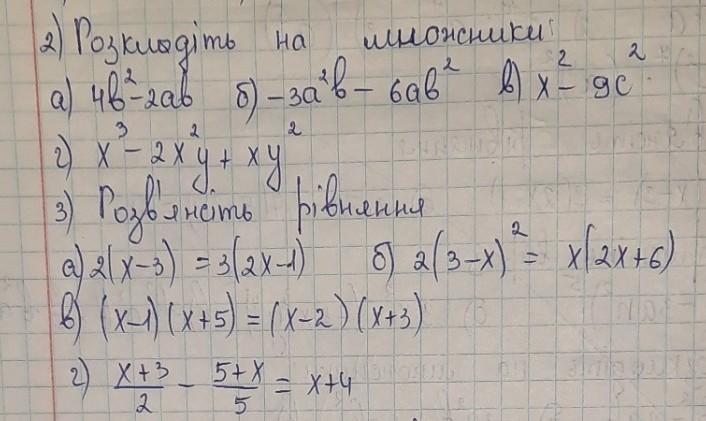 2) Розкладіть на множники:
а) 4b² - 2ab б) -3a²b - 6ab² в) x² - 9c²
г) x³ - 2x²y + xy²
3) Розв'яжіть рівняння
а) 2(x-3) = 3(2x-1) б) 2(3-x)² = x(2x+6)
в) (x-1)(x+5) = (x-2)(x+3)
г) (x+3)/2 - (5+x)/5 = x+4